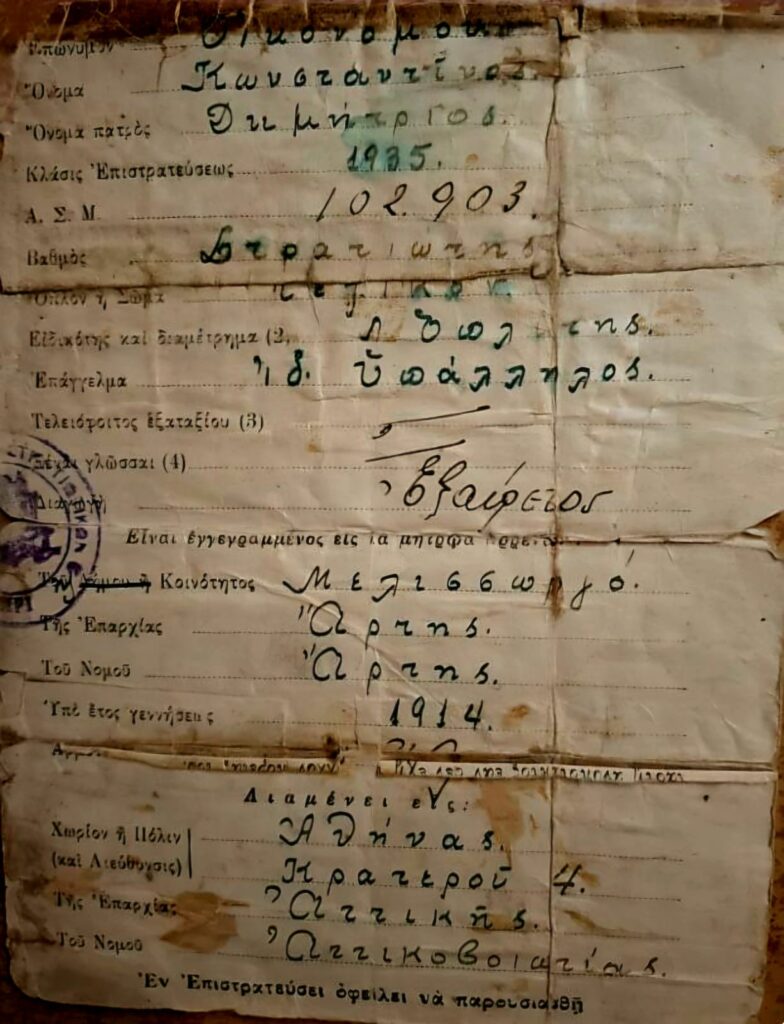 Ἐπώνυμον Οἰκονόμου
Ὄνομα Κωνσταντῖνος.
Ὄνομα πατρὸς Δημήτριος.
Κλάσις Ἐπιστρατεύσεως 1935.
Α. Σ. Μ. 102.903.
Βαθμὸς Στρατιώτης
Ὅπλον ἢ Σῶμα
Εἰδικότης καὶ διαμέτρημα (2)
Ἐπάγγελμα Ἰδ. Ὑπάλληλος.
Τελειόφοιτος ἑξαταξίου (3)
Ξέναι γλῶσσαι (4)
Διαγωγὴ Ἐξαίρετος
Εἶναι ἐγγεγραμμένος εἰς τὰ μητρῷα
Δήμου ἢ Κοινότητος Μελισσουργό.
Τῆς Ἐπαρχίας Ἄρτης.
Τοῦ Νομοῦ Ἄρτης.
Ὑπὸ ἔτος γεννήσεως 1914.
Διαμένει εἰς:
Χωρίον ἢ Πόλιν Ἀθήνας.
(καὶ Διεύθυνσις) Κρατεροῦ 4.
Τῆς Ἐπαρχίας Ἀττικῆς.
Τοῦ Νομοῦ Ἀττικοβοιωτίας.
Ἐν Ἐπιστρατεύσει ὀφείλει νὰ παρουσιασθῇ